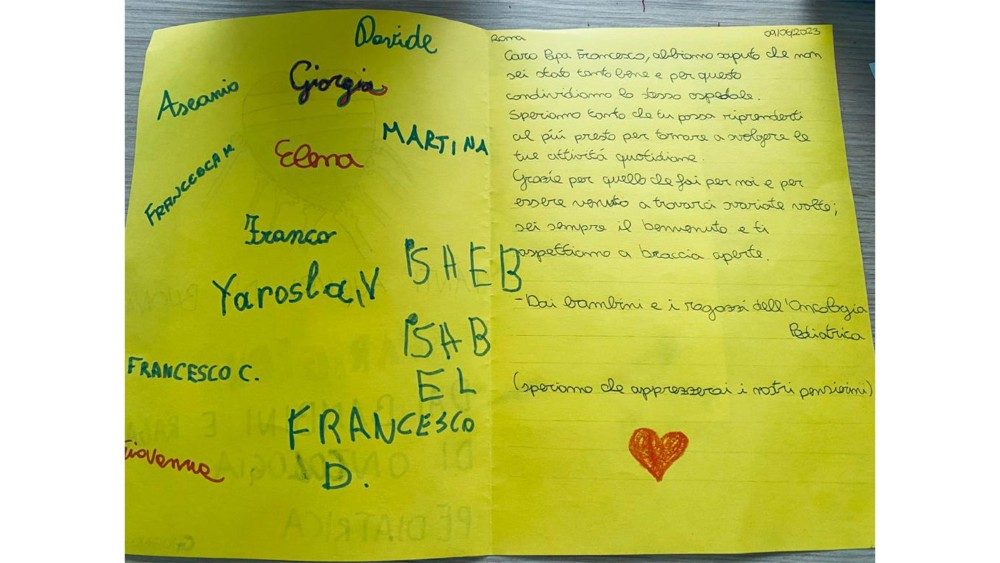 Davide
Giorgia
Ascanio
MARTINA
Elena
FRANCESCA M
Franco
ISAEB
Yaroslav
ISAB
EL
FRANCESCO C.
FRANCESCO
D.
Giovanna
Roma
09/06/2023
Caro Papa Francesco, abbiamo saputo che non
sei stato tanto bene e per questo
condividiamo lo stesso ospedale.
Speriamo tanto che tu possa riprenderti
al più presto per tornare a svolgere le
tue attività quotidiane.
Grazie per quello che fai per noi e per
essere venuto a trovarci svariate volte;
sei sempre il benvenuto e ti
aspettiamo a braccia aperte.
- Dai bambini e i ragazzi dell'Oncologia
Pediatrica
(speriamo che apprezzerai i nostri pensierini)
DI ONCOLOGIA
PEDIATRICA